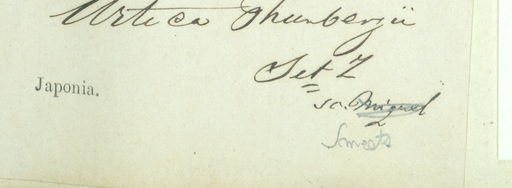 Urtica Thunbergii
Set
Japonia.
sc. Miquel